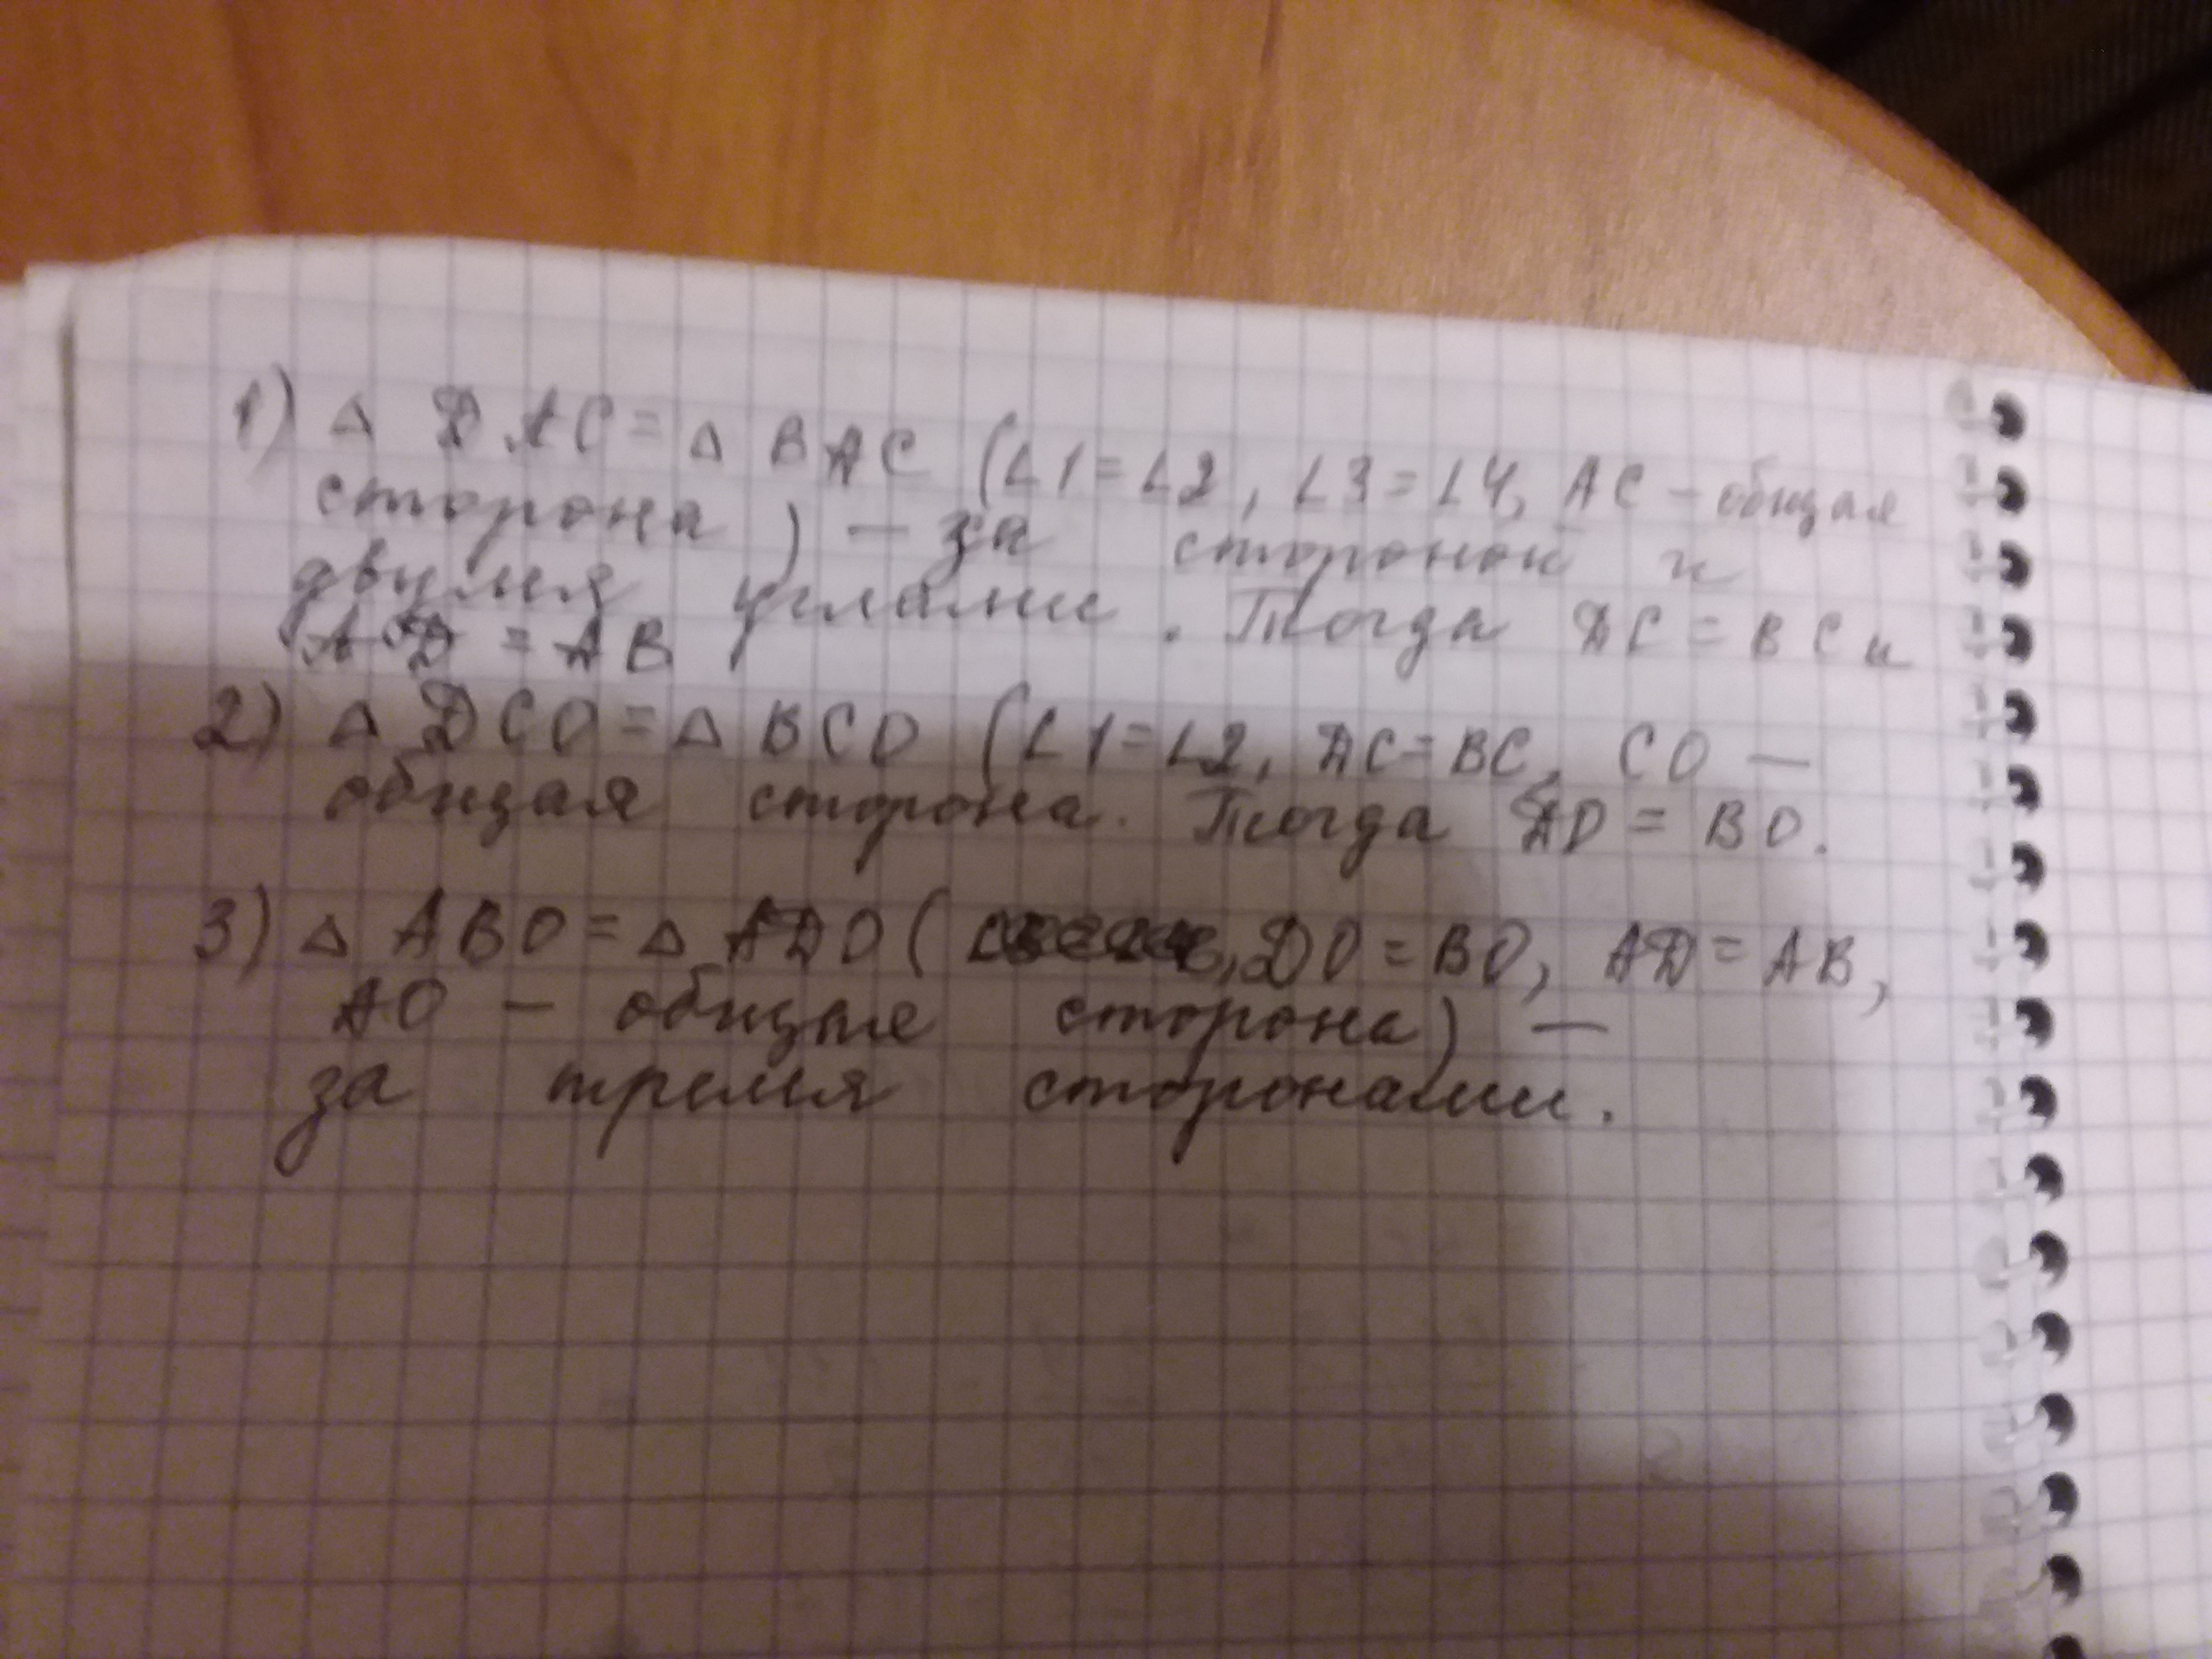 1) △ DAC = △ BAC (∠1=∠2, ∠3=∠4, AC – общая
сторона) – за стороной и
двумя углами. Тогда DC = BC и
AD = AB
2) △ DCO = △ BCO (∠1=∠2, DC=BC, CO –
общая сторона. Тогда DO = BO.
3) △ ABO = △ ADO ( , DO = BO, AD = AB,
AO – общая сторона) –
за тремя сторонами.